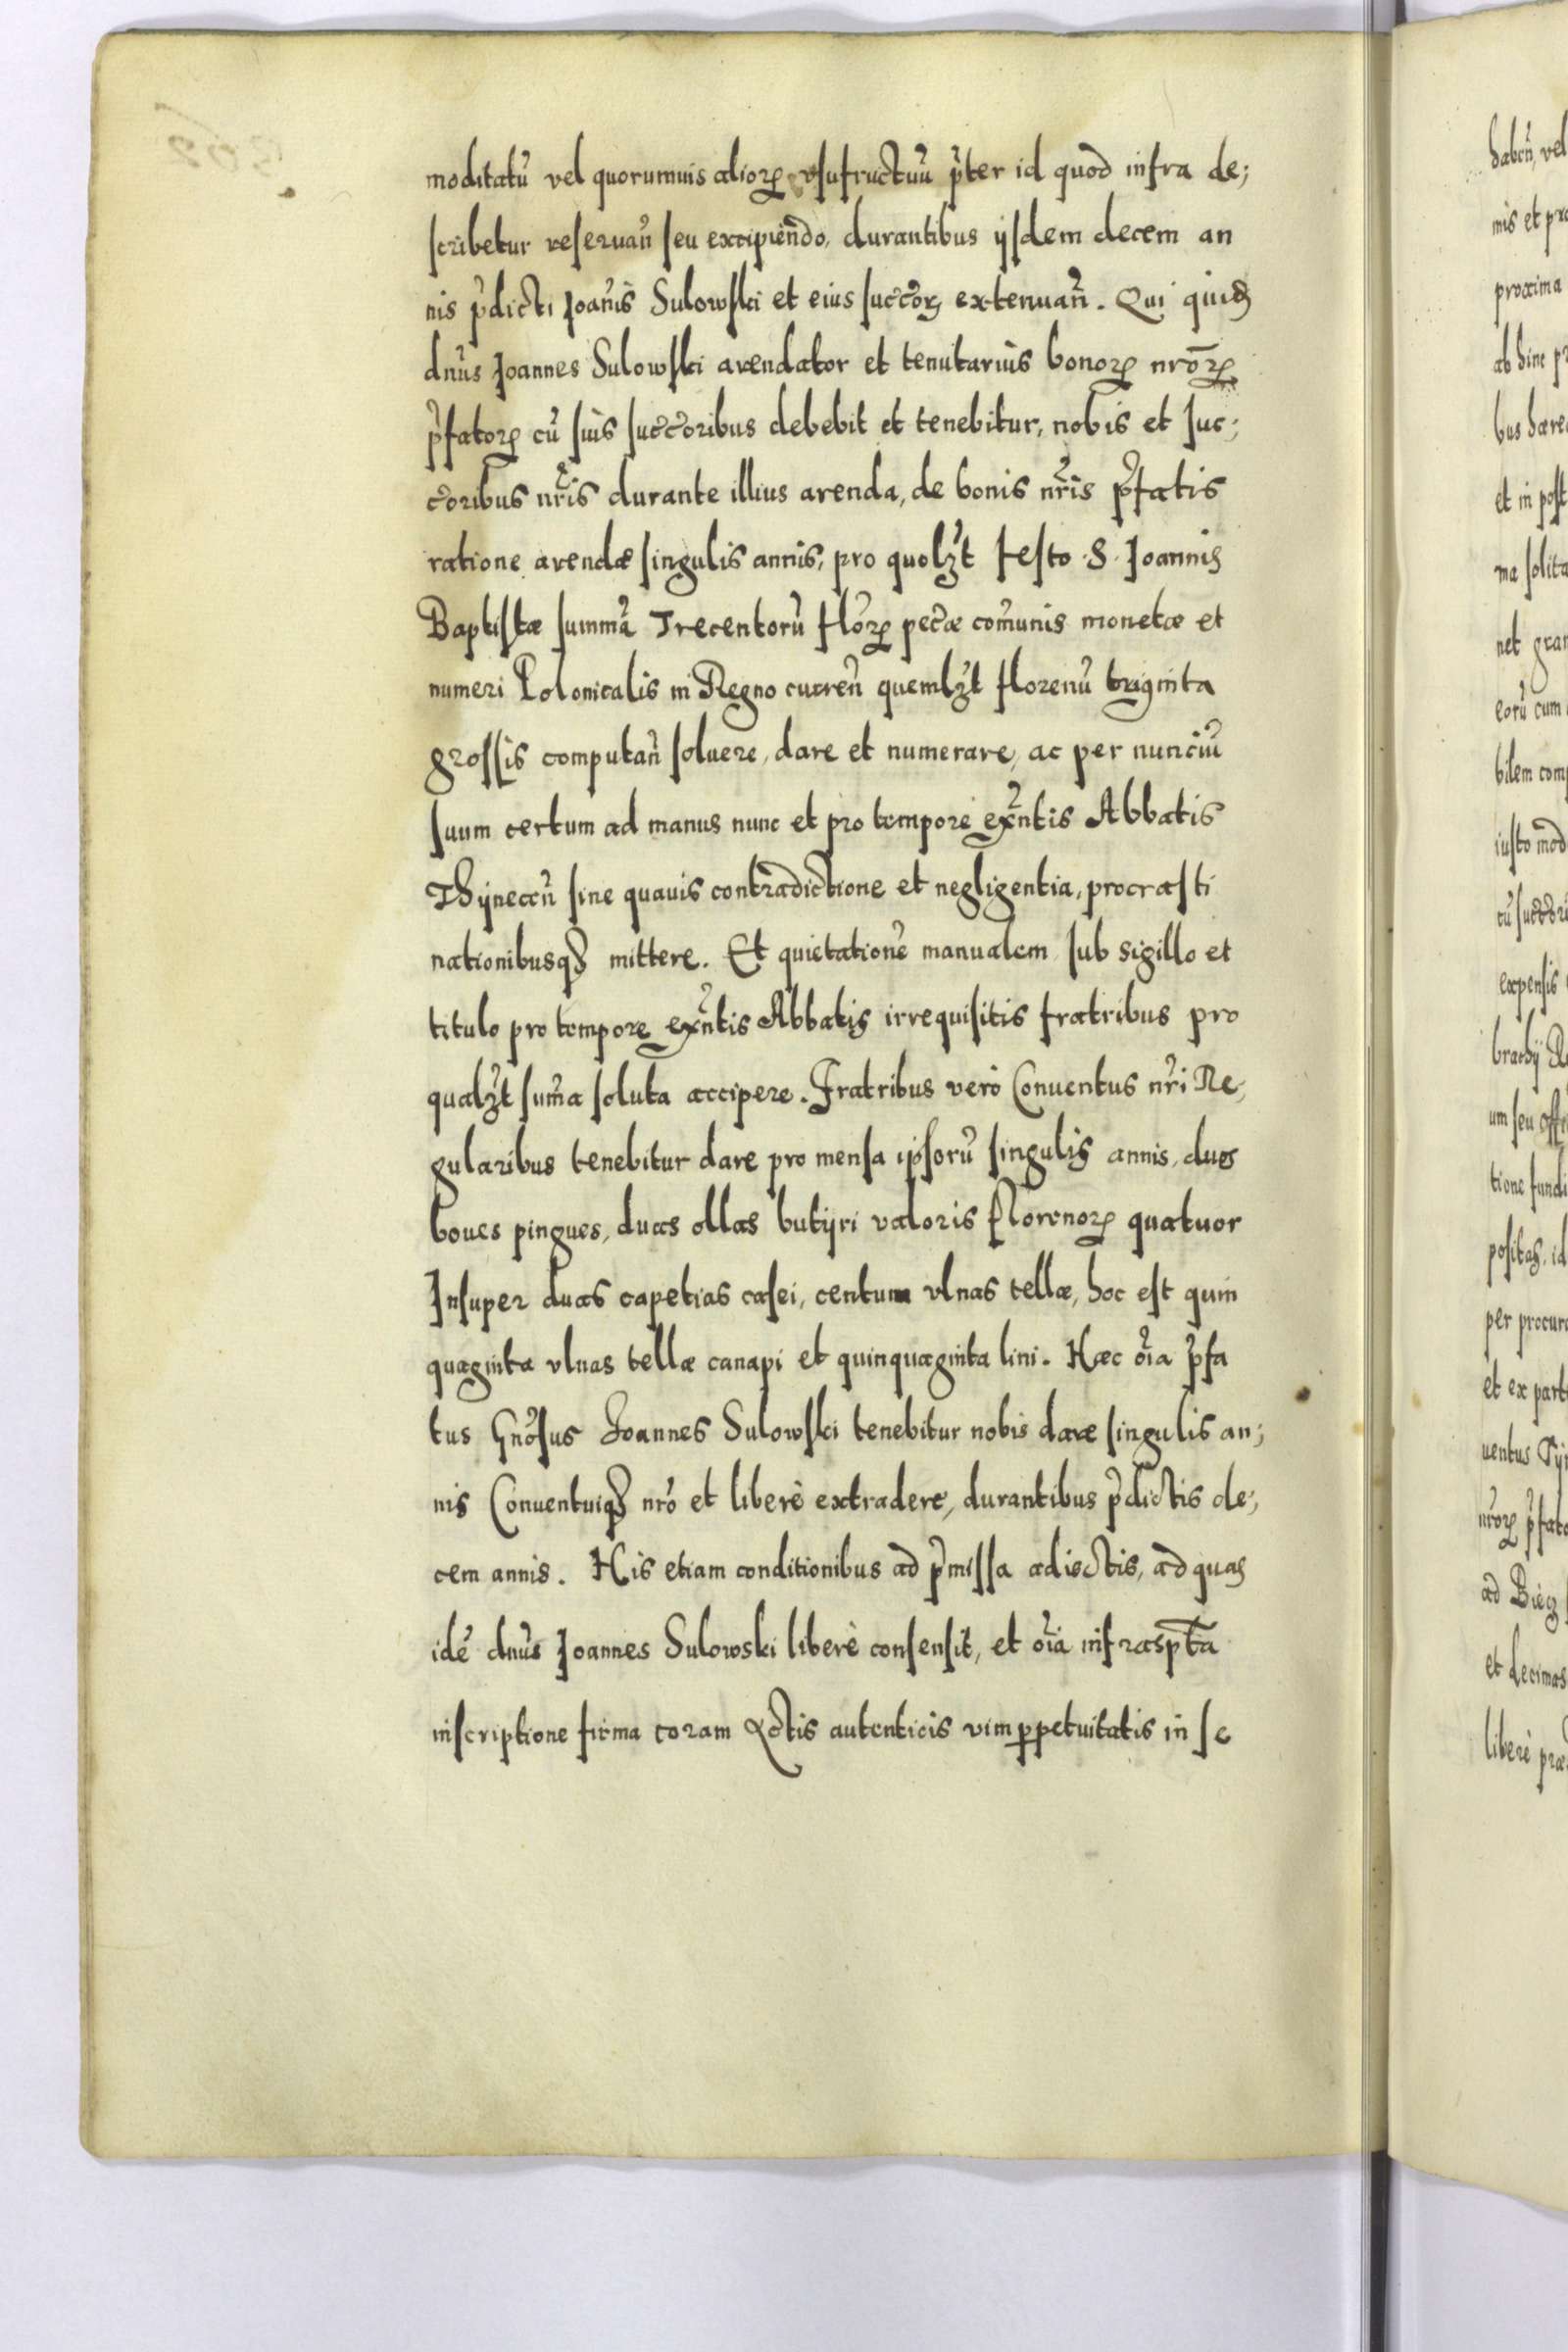 moditatũ vel quorumuis alioꝝ vsufructuũ p̃ter id quod infra de;
scribetur reseruañ seu excipiendo, durantibus ijsdem decem an
nis p̃dicti Joañis Sulowski et eius succ̃oꝝ extenuañ. Qui quidẽ
dnus̃ Joannes Sulowski arendator et tenutarius bonoꝝ nrõꝝ
p̃fatoꝝ cũ suis succ̃oribus debebit et tenebitur, nobis et suc;
c̃oribus nr̃is durante illius arenda, de bonis nr̃is p̃fatis
ratione arendæ singulis annis, pro quolꝫt festo S. Joannis
Baptistæ summã Trecentorũ flõꝝ pec̃æ com̃unis monetæ et
numeri Polonicalis in Regno cureñ quemlꝫt florenũ triginta
grossis computañ soluere, dare et numerare, ac per nunciũ
suum certum ad manus nunc et pro tempore exñtis Abbatis
Thyneceñ sine quauis contradictione et negligentia, procrasti
nationibusqꝫ mittere. Et quietationẽ manualem sub sigillo et
titulo pro tempore exñtis Abbatis irrequisitis fratribus pro
qualꝫt sum̃a soluta accipere. Fratribus verò Conuentus nr̃i Re,
gularibus tenebitur dare pro mensa ipsorũ singulis annis, duos
boues pingues, duas ollas butyri valoris florenoꝝ quatuor
Insuper duas capetias casei, centum vlnas tellæ, hoc est quin
quaginta vlnas tellæ canapi et quinquaginta lini. Hæc oĩa p̃fa
tus Gnõsus Joannes Sulowski tenebitur nobis dare singulis an;
nis Conuentuiqꝫ nrõ et liberè extradere, durantibus p̃dictis de;
cem annis. His etiam conditionibus ad p̃missa adiectis, ad quas
idẽ dnũs Joannes Sulowski liberè consensit, et oĩa infraspt̃a
inscriptione firma coram Actis autenticis vim ꝑpetuitatis in se
habeñ, vel
nis et pro
proxima
ab hinc
et in post
ma solita
net
eorũ cum
bilem com
iusto mod
expensis
um seu
tione fundi
positas, id
per procura
et ex part
uentus
nr̃oꝝ p̃fato
ad Biecz
et decimas
liberè præ